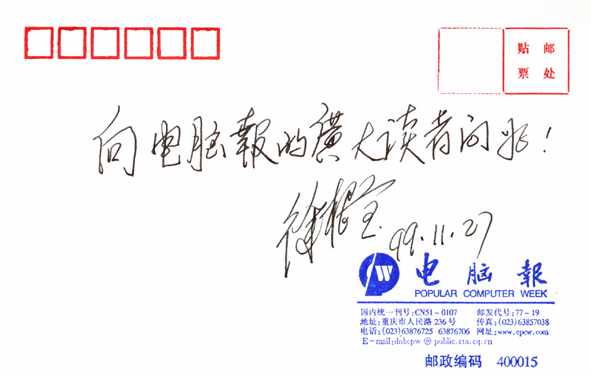 贴 邮
票 处
向电脑報的廣大读者问好！
徐根宝 99.11.27
电脑報
POPULAR COMPUTER WEEK
国内统一刊号:CN51-0107 邮发代号:77-19
地址:重庆市人民路 236 号 传真:(023)63857038
电话:(023)63876725 63876706 网址:www.cpcw.com
@ public.cta.cq.cn
邮政编码 400015